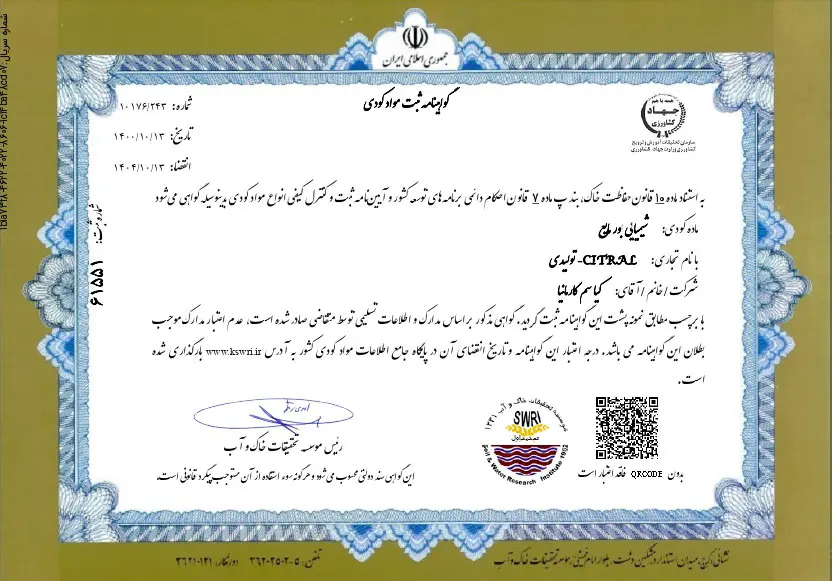 جمهوری اسلامی ایران
گواهینامه ثبت مواد کودی
شماره: ۱۰۱۷۶/۲۴۳
تاریخ: ۱۴۰۰/۱۰/۱۳
انقضاء: ۱۴۰۴/۱۰/۱۳
همه با هم
جهاد
کشاورزی
سازمان تحقیقات، آموزش و ترویج
کشاورزی وزارت جهاد کشاورزی
به استناد ماده ۱۰ قانون حفاظت خاک، بند پ ماده ۷ قانون احکام دائمی برنامه های توسعه کشور و آیین‌نامه ثبت و کنترل کیفی انواع مواد کودی بدینوسیله گواهی می شود
ماده کودی: شیمیایی بور مایع
با نام تجاری: CITRAL-تولیدی
شرکت / خانم / آقای: کیا سم کارمانیا
با برچسب مطابق نمونه پشت این گواهینامه ثبت گردید. گواهی مذکور بر اساس مدارک و اطلاعات تسلیمی توسط متقاضی صادر شده است، عدم اعتبار مدارک موجب
بطلان این گواهینامه می باشد. درجه اعتبار این گواهینامه و تاریخ انقضای آن در پایگاه جامع اطلاعات مواد کودی کشور به آدرس www.kswri.ir بارگذاری شده
است.
شماره ثبت: ۶۱۵۵۱
رئیس موسسه تحقیقات خاک و آب
این گواهی سند دولتی محسوب می شود و هرگونه سوء استفاده از آن مستوجب پیگرد قانونی است.
موسسه تحقیقات خاک و آب ۱۳۳۱
SWRI
Soil & Water Research Institute 1952
بدون QRCODE فاقد اعتبار است
نشانی: کرج، میدان استاندارد، مشکین دشت، بلوار امام خمینی، موسسه تحقیقات خاک و آب
تلفن: ۵-۳۶۲۰۳۵۰۲ دورنگار: ۳۶۲۱۰۱۲۱
شماره سریال: